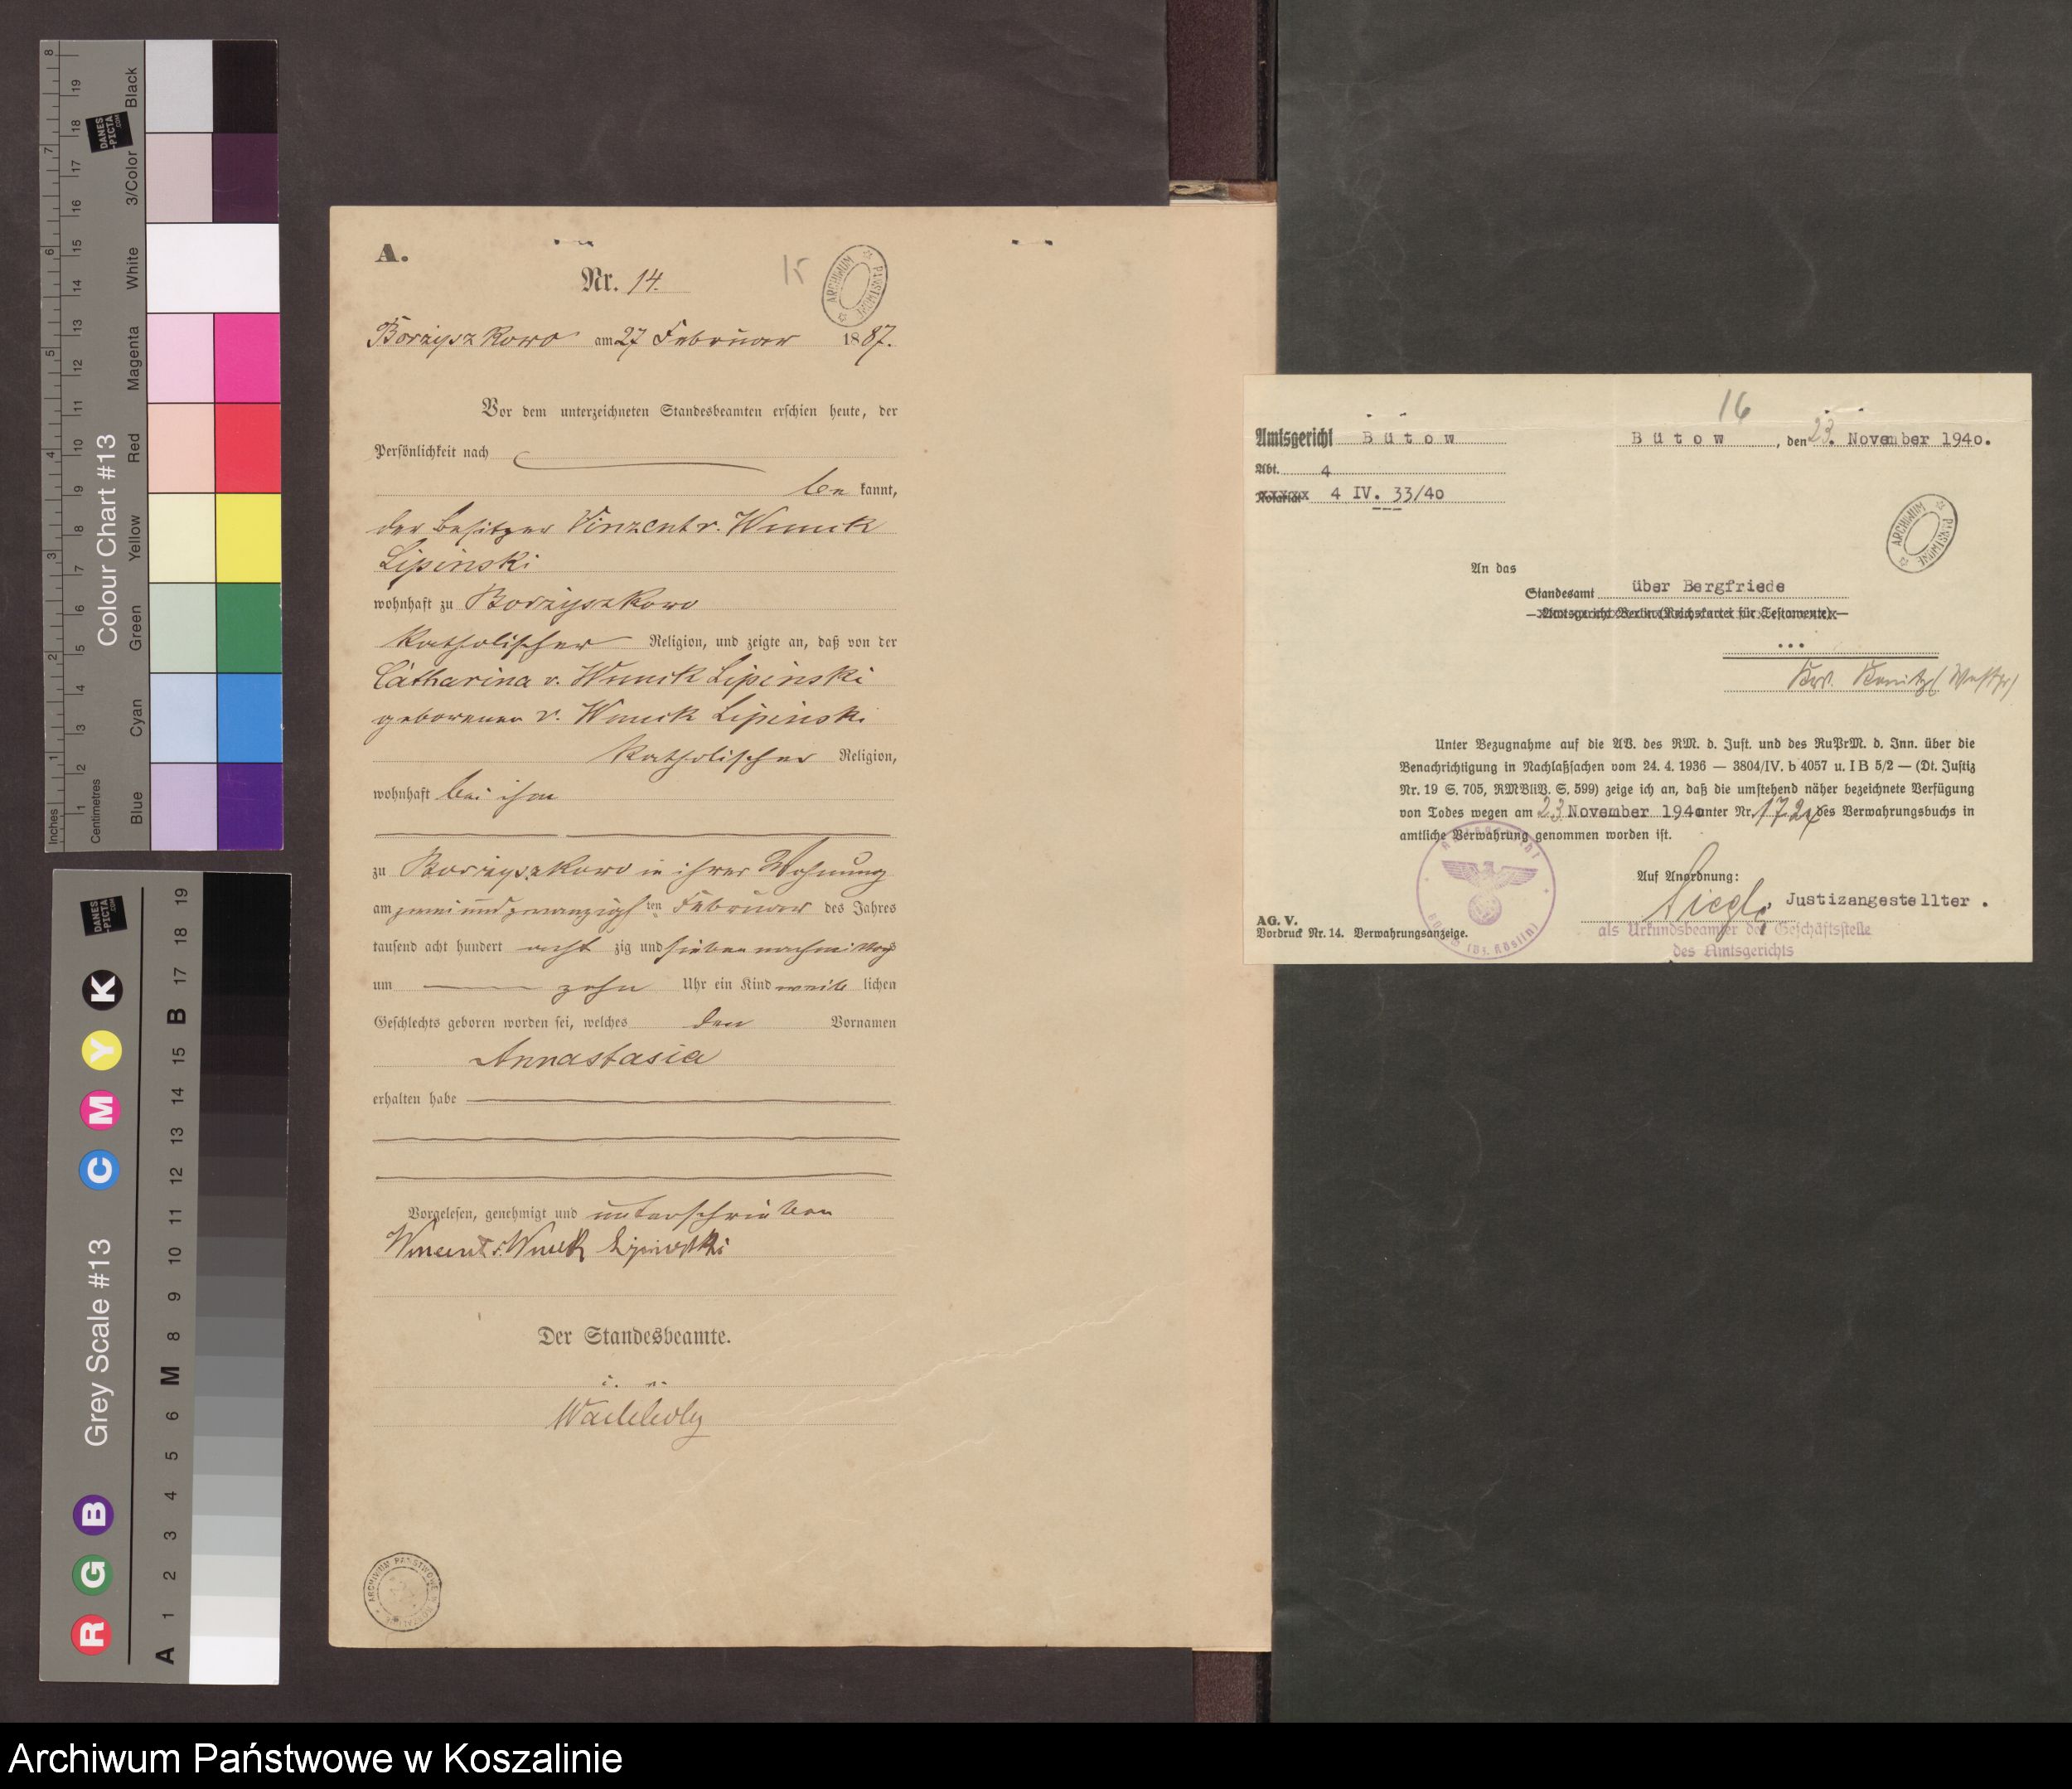 A.
Nr. 14.
15
ARCHIWUM PAŃSTWOWE
Borzyszkowo am 27 Februar 1887.
Vor dem unterzeichneten Standesbeamten erschien heute, der
Persönlichkeit nach
be kannt,
der Besitzer Vinzent v. Wnuck
Lipinski
wohnhaft zu Borzyszkowo
katholischer Religion, und zeigte an, daß von der
Catharina v. Wnuck Lipinski
geborenen v. Wnuck Lipinski
katholischer Religion,
wohnhaft bei ihm
zu Borzyszkowo in ihrer Wohnung
am zwei und zwanzigsten Februar des Jahres
tausend acht hundert acht zig und sieben nachmittags
um zehn Uhr ein Kind weib lichen
Geschlechts geboren worden sei, welches den Vornamen
Annastasia
erhalten habe
Vorgelesen, genehmigt und unterschrieben
Wincent v. Wnuck Lipinski
Der Standesbeamte.
ARCHIWUM PAŃSTWOWE
16
Amtsgericht Bütow
Bütow, den 23. November 1940.
Abt. 4
Notariat 4 IV. 33/40
ARCHIWUM PAŃSTWOWE
An das
Standesamt über Bergfriede
Amtsgericht Berlin (Reichskartei für Testamente)
Krs. Konitz (Westpr)
Unter Bezugnahme auf die AV. des RM. d. Just. und des RuPrM. d. Inn. über die
Benachrichtigung in Nachlaßsachen vom 24. 4. 1936 — 3804/IV. b 4057 u. I B 5/2 — (Dt. Justiz
Nr. 19 S. 705, RMBliV. S. 599) zeige ich an, daß die umstehend näher bezeichnete Verfügung
von Todes wegen am 23 November 1940 unter Nr. des Verwahrungsbuchs in
amtliche Verwahrung genommen worden ist.
Auf Anordnung:
Justizangestellter.
als Urkundsbeamter der Geschäftsstelle
des Amtsgerichts
AG. V.
Vordruck Nr. 14. Verwahrungsanzeige.
Inches
Centimetres
Colour Chart #13
Blue
Cyan
Green
Yellow
Red
Magenta
White
3/Color
Black
DANES-PICTA.COM
Grey Scale #13
R G B C M Y K
A 1 2 3 4 5 6 M 8 9 10 11 12 13 14 15 B 17 18 19
DANES-PICTA.COM
Archiwum Państwowe w Koszalinie